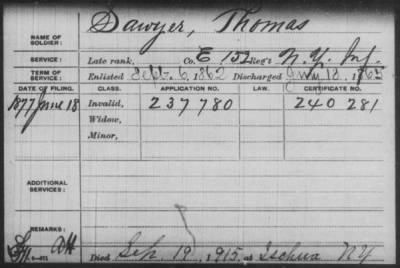 Sawyer, Thomas
NAME OF SOLDIER:
SERVICE: Late rank, Co. E 152 Reg't N.Y. Inf.
TERM OF SERVICE: Enlisted Sept. 6, 1862 Discharged July 13, 1865
DATE OF FILING. CLASS. APPLICATION NO. LAW. CERTIFICATE NO.
1877 June 18 Invalid, 237780 240281
Widow,
Minor,
ADDITIONAL SERVICES:
Died Sep. 19, 1915, at Ischua NY